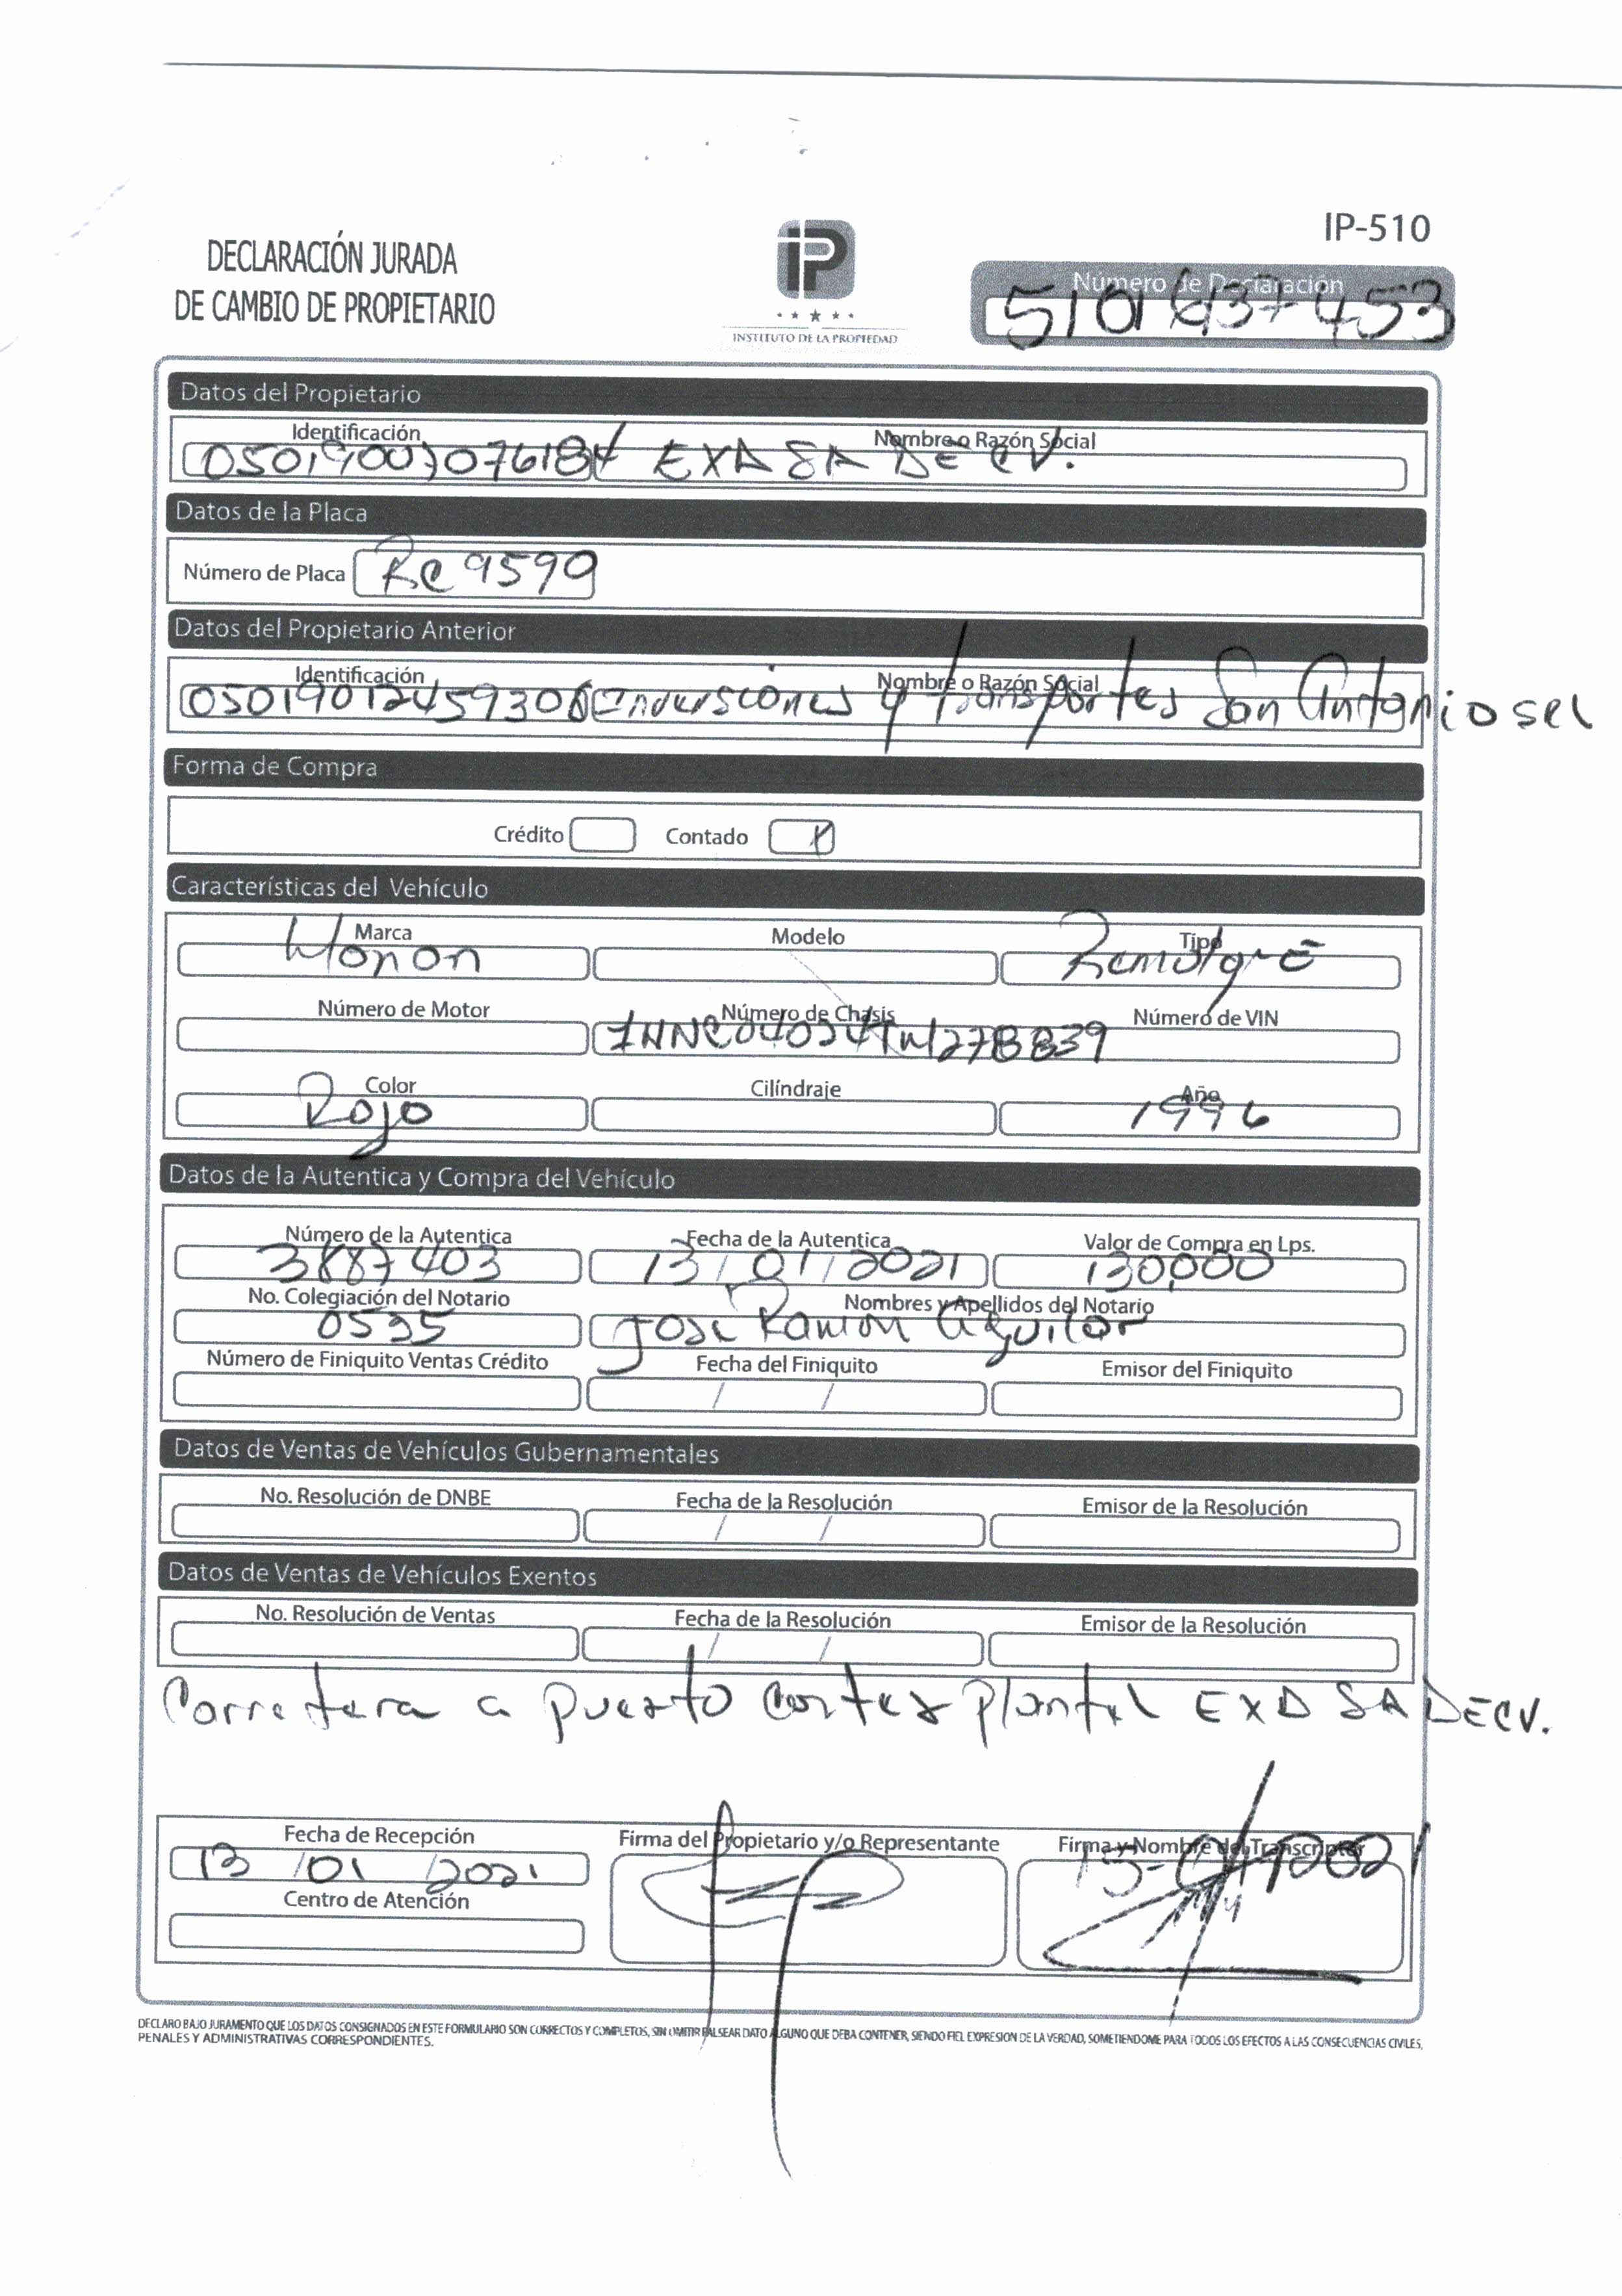 IP-510
DECLARACIÓN JURADA
DE CAMBIO DE PROPIETARIO
iP
INSTITUTO DE LA PROPIEDAD
Número de Declaración
Datos del Propietario
Identificación Nombre o Razón Social
EXD SA DE CV.
Datos de la Placa
Número de Placa RC 9590
Datos del Propietario Anterior
Identificación Nombre o Razón Social
Inversiones y Transportes San Antonio
Forma de Compra
Crédito Contado X
Características del Vehículo
Marca Modelo Tipo
Monon Remolque
Número de Motor Número de Chasis Número de VIN
Color Cilíndraje Año
Rojo 1996
Datos de la Autentica y Compra del Vehículo
Número de la Autentica Fecha de la Autentica Valor de Compra en Lps.
3887403 13/01/2021 130,000
No. Colegiación del Notario Nombres y Apellidos del Notario
0535 Jose Ramon Aguilar
Número de Finiquito Ventas Crédito Fecha del Finiquito Emisor del Finiquito
/ /
Datos de Ventas de Vehículos Gubernamentales
No. Resolución de DNBE Fecha de la Resolución Emisor de la Resolución
/ /
Datos de Ventas de Vehículos Exentos
No. Resolución de Ventas Fecha de la Resolución Emisor de la Resolución
/ /
Carretera a puerto cortes plantel EXD SA DE CV.
Fecha de Recepción Firma del Propietario y/o Representante Firma y Nombre del Transcriptor
13/01/2021
Centro de Atención
DECLARO BAJO JURAMENTO QUE LOS DATOS CONSIGNADOS EN ESTE FORMULARIO SON CORRECTOS Y COMPLETOS, SIN OMITIR FALSEAR DATO ALGUNO QUE DEBA CONTENER, SIENDO FIEL EXPRESION DE LA VERDAD, SOMETIENDOME PARA TODOS LOS EFECTOS A LAS CONSECUENCIAS CIVILES,
PENALES Y ADMINISTRATIVAS CORRESPONDIENTES.